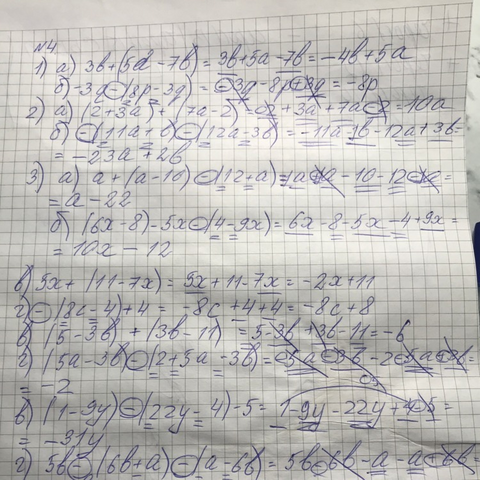 №4
1) а) 3b+(5a-7b)=3b+5a-7b=-4b+5a
б) -3g-(8p-3g)=-3g-8p+3g=-8p
2) а) (2+3a)+(7a-2)=2+3a+7a-2=10a
б) -(11a+b)-(12a-3b)=-11a-b-12a+3b=
=-23a+2b
3) а) a+(a-10)-(12+a)=a+a-10-12-a=
=a-22
б) (6x-8)-5x-(4-9x)=6x-8-5x-4+9x=
=10x-12
в) 5x+(11-7x)=5x+11-7x=-2x+11
г) -(8c-4)+4=-8c+4+4=-8c+8
в) (5-3b)+(3b-11)=5-3b+3b-11=-6
г) (5a-3b)-(2+5a-3b)=5a-3b-2-5a+3b=
=-2
в) (1-9y)-(22y-4)-5=1-9y-22y+4-5=
=-31y
г) 5b-(6b+a)-(a-6b)=5b-6b-a-a+6b=